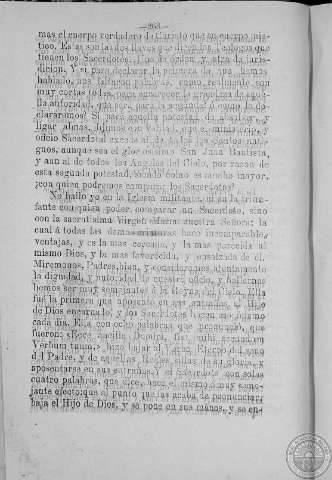 —268—
mas el cuerpo verdadero de Christo que su cuerpo mis-
tico. Estas son las dos llaves que dicen los Teologos que
tienen los Sacerdotes. Una de órden y otra de juris-
diccion. Y si para declarar la primera de que hemos
hablado, nos faltaron palabras, como realmente son
muy cortas todas para
lla autoridad, que será para la segunda? Como la de-
clararemos? Si para aquella potestad de absolver, y
ligar almas, dijimos con verdad, que el ministerio, y
oficio Sacerdotal excede al de todos los Santos anti-
guos, aunque sea el glorioso San Juan Bautista,
y aun al de todos los Angeles del Cielo, por razon de
esta segunda potestad, siendo como es mucho mayor,
¿con quien podremos comparar los Sacerdotes?
No hallo yo en la Iglesia militante, ni en la triun-
fante con quien poder comparar un Sacerdote, sino
con la sacratísima Virgen Maria nuestra Señora: la
cual á todas las demas criaturas hace incomparable,
ventajas, y es la mas cercana, y la mas parecida al
mismo Dios, y la mas favorecida, y ensalzada de él.
Miremonos, Padres, bien, y consideremos atentamente
la dignidad, y autoridad de nuestro oficio, y hallarnos
hemos ser muy semejantes á la Reyna del Cielo. Ella
fué la primera que aposentó en sus entrañas el Hijo
de Dios encarnado, y los Sacerdotes hacen lo mismo
cada dia. Ella con ocho palabras que pronunció, que
fueron: Ecce ancilla Domini, fiat mihi secundum
Verbum tuum, hizo bajar el Verbo Eterno del seno
del Padre, y de aquellas Reales salas de su gloria, y
aposentarse en sus entrañas; el Sacerdote con solas
cuatro palabras, que dice, hace el mismo ó muy seme-
jante efecto; que al punto que las acaba de pronunciar,
baja el Hijo de Dios, y se pone en sus manos, y se en-